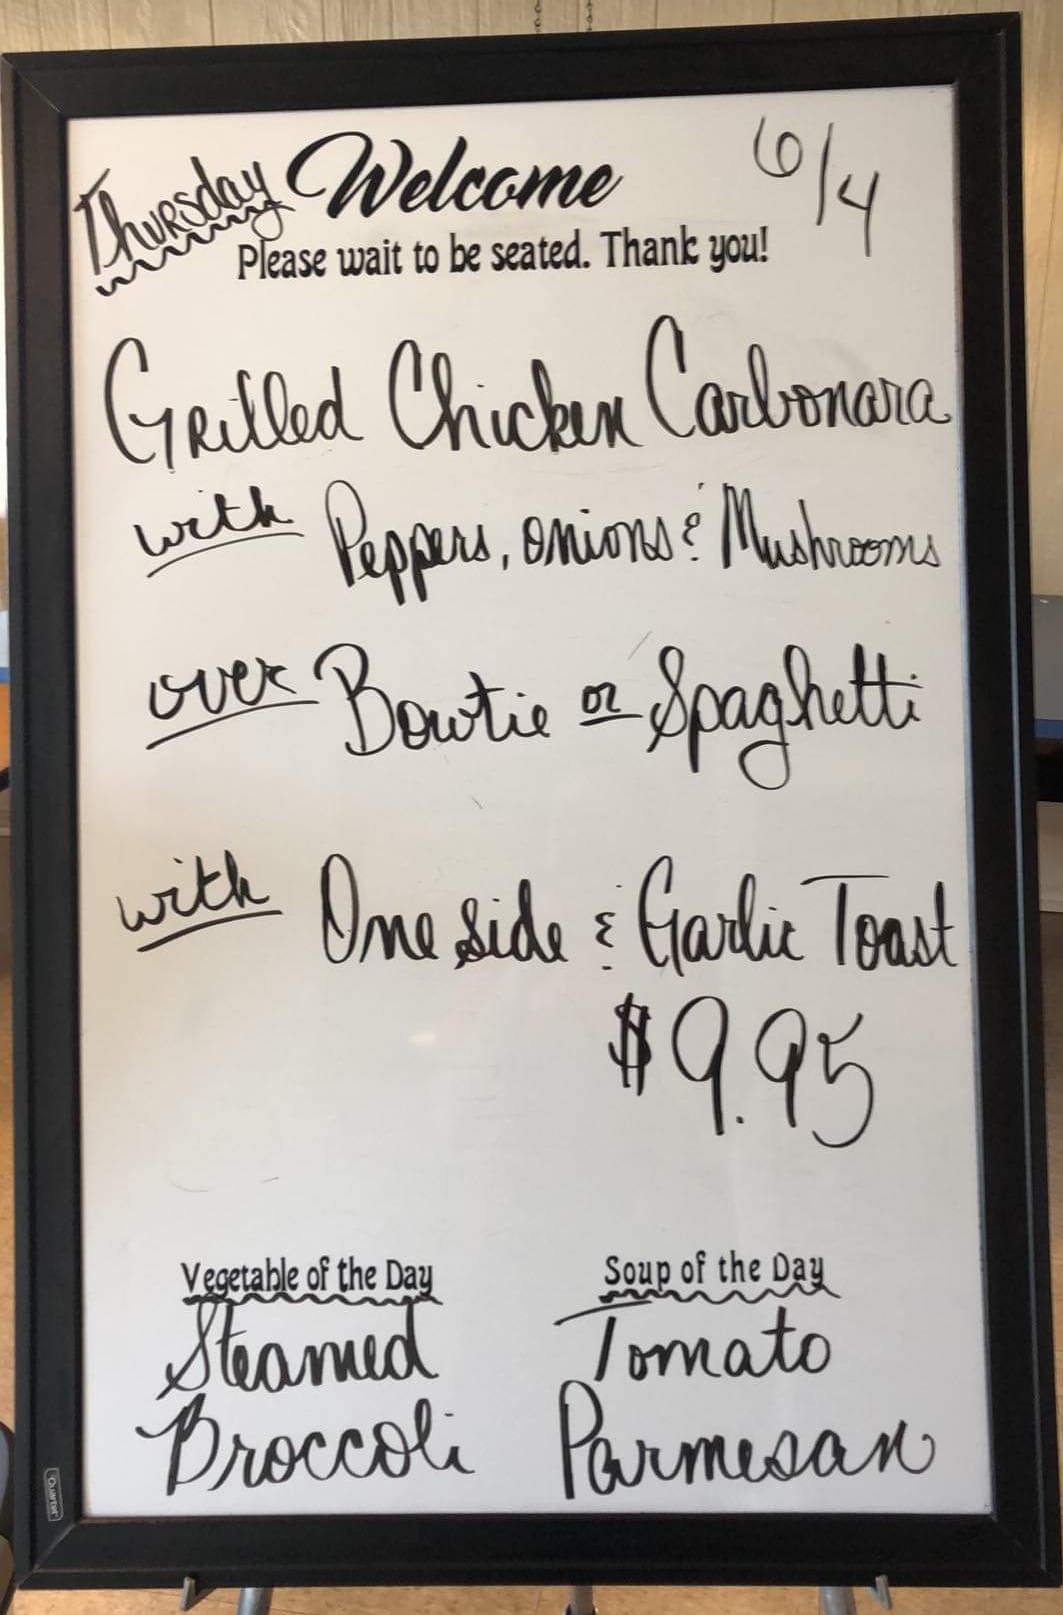 Thursday Welcome 6/4
Please wait to be seated. Thank you!
Grilled Chicken Carbonara
with Peppers, onions & Mushrooms
over Bowtie or Spaghetti
with One side & Garlic Toast
$9.95
Vegetable of the Day
Steamed
Broccoli
Soup of the Day
Tomato
Parmesan
Quartet